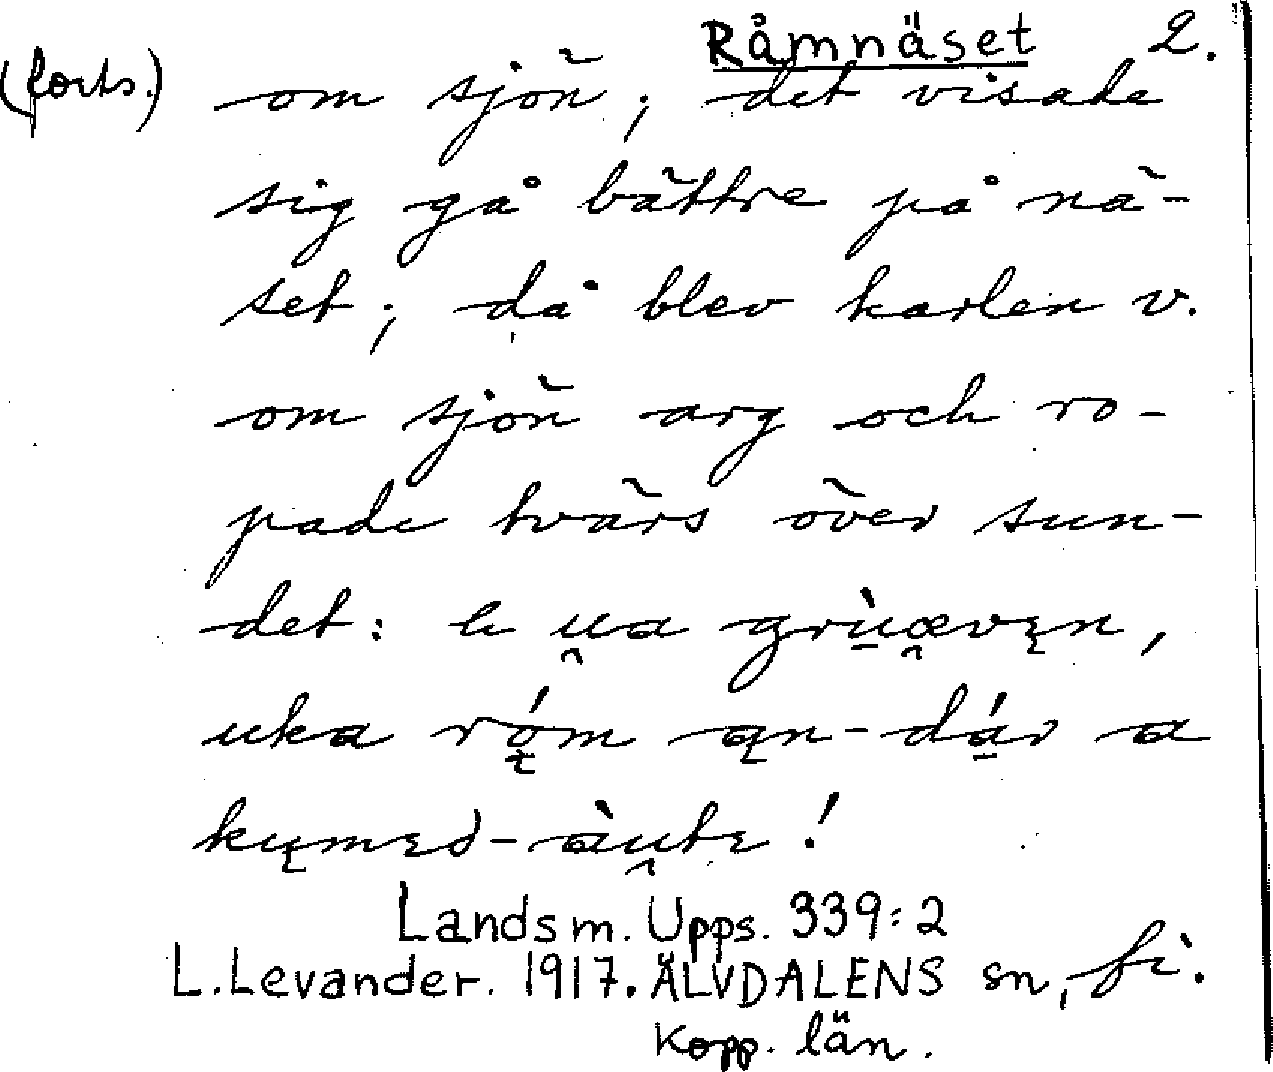 Råmnäset 2.
(forts.) om sjön; det visade
sig gå bättre på nä-
set; då blev karlen v.
om sjön arg och ro-
pade tvärs över sun-
det: u̯a grù̱æ̯vęn,
uka rǫ́m ąn-dá̱r a
kųmęd-àu̯tę!
Landsm. Upps. 339:2
L.Levander. 1917. ÄLVDALENS sn,
Kopp. län.